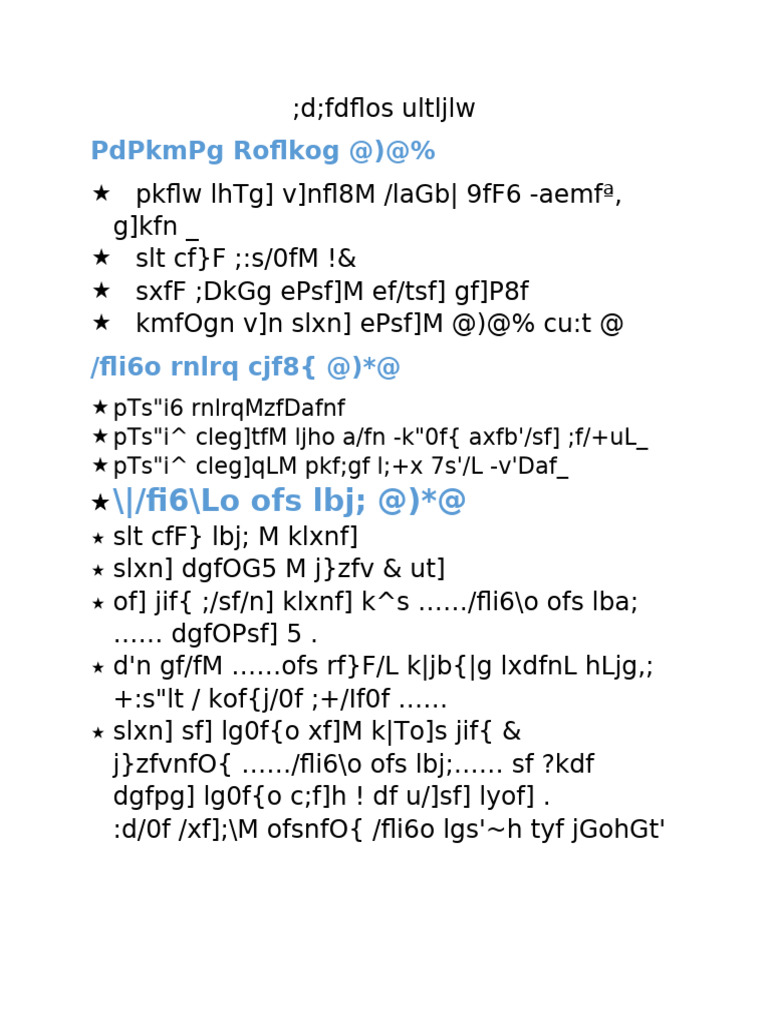 ;d;fdflos ultljlw
PdPkmPg Roflkog @)@%
★ pkflw lhTg] v]nfl8M /laGb| 9fF6 -aemfª,
g]kfn _
★ slt cf}F ;:s/0fM !&
★ sxfF ;DkGg ePsf]M ef/tsf] gf]P8f
★ kmfOgn v]n slxn] ePsf]M @)@% cu:t @
/fli6o rnlrq cjf8{ @)*@
★ pTs"i6 rnlrqMzfDafnf
★ pTs"i^ cleg]tfM ljho a/fn -k"0f{ axfb'/sf] ;f/+uL_
★ pTs"i^ cleg]qLM pkf;gf l;+x 7s'/L -v'Daf_
★ \|/fi6\Lo ofs lbj; @)*@
★ slt cfF} lbj; M klxnf]
★ slxn] dgfOG5 M j}zfv & ut]
★ of] jif{ ;/sf/n] klxnf] k^s ……/fli6\o ofs lba;
…… dgfOPsf] 5 .
★ d'n gf/fM ……ofs rf}F/L k|jb{|g lxdfnL hLjg,;
+:s"lt / kof{j/0f ;+/If0f ……
★ slxn] sf] lg0f{o xf]M k|To]s jif{ &
j}zfvnfO{ ……/fli6\o ofs lbj;…… sf ?kdf
dgfpg] lg0f{o c;f]h ! df u/]sf] lyof] .
:d/0f /xf];\M ofsnfO{ /fli6o lgs'~h tyf jGohGt'